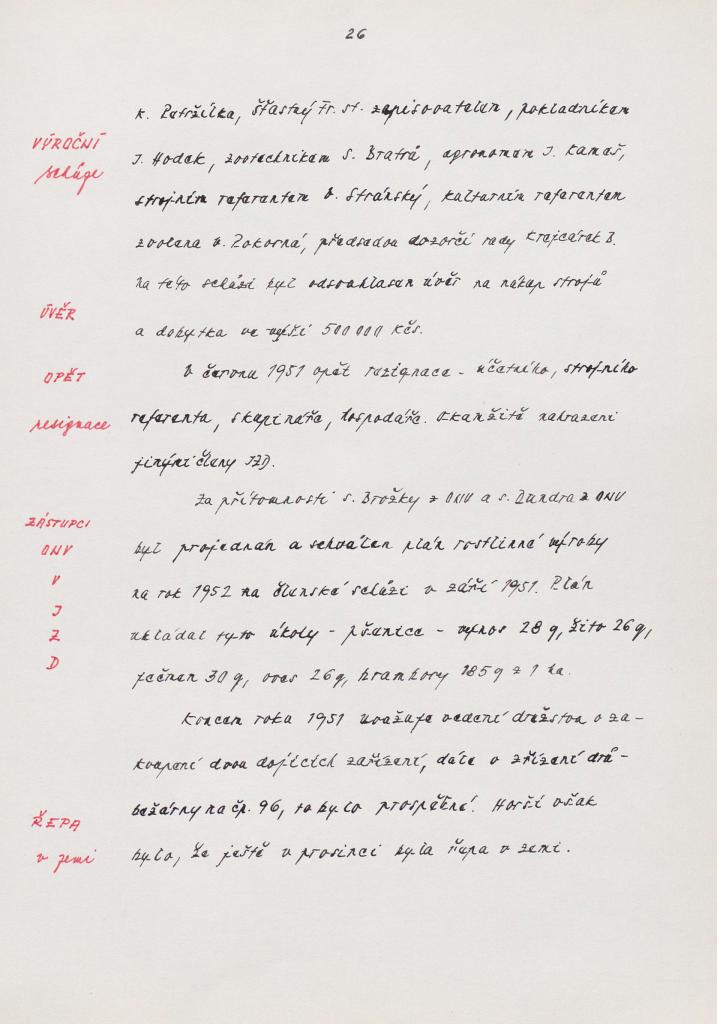 26
K. Petržilka, Šťastný Fr. st. zapisovatelem, pokladníkem
VÝROČNÍ
schůze
J. Hodek, zootechnikem s. Bratrů, agronomem J. Kamaš,
strojním referentem V. Stránský, kulturním referentem
zvolena V. Pokorná, předsedou dozorčí rady Krejcárek B.
Na této schůzi byl odsouhlasen úvěr na nákup strojů
ÚVĚR
a dobytka ve výši 500 000 Kčs.
V červnu 1951 opět rezignace - účetního, strojního
OPĚT
resignace
referenta, skupináře, hospodáře. Okamžitě nahrazeni
jinými členy JZD.
Za přítomnosti s. Brožky z ONV a s. Dundra z ONV
ZÁSTUPCI
ONV
V
J
Z
D
byl projednán a schválen plán rostlinné výroby
na rok 1952 na členské schůzi v září 1951. Plán
ukládal tyto úkoly - pšenice - výnos 28 q, žito 26 q,
ječmen 30 q, oves 26 q, brambory 185 q z 1 ha.
Koncem roku 1951 uvažuje vedení družstva o za-
koupení dvou dojících zařízení, dále o zřízení drů-
bežárny na čp. 96, to bylo prospěšné. Horší však
ŘEPA
v zemi
bylo, že ještě v prosinci byla řepa v zemi.